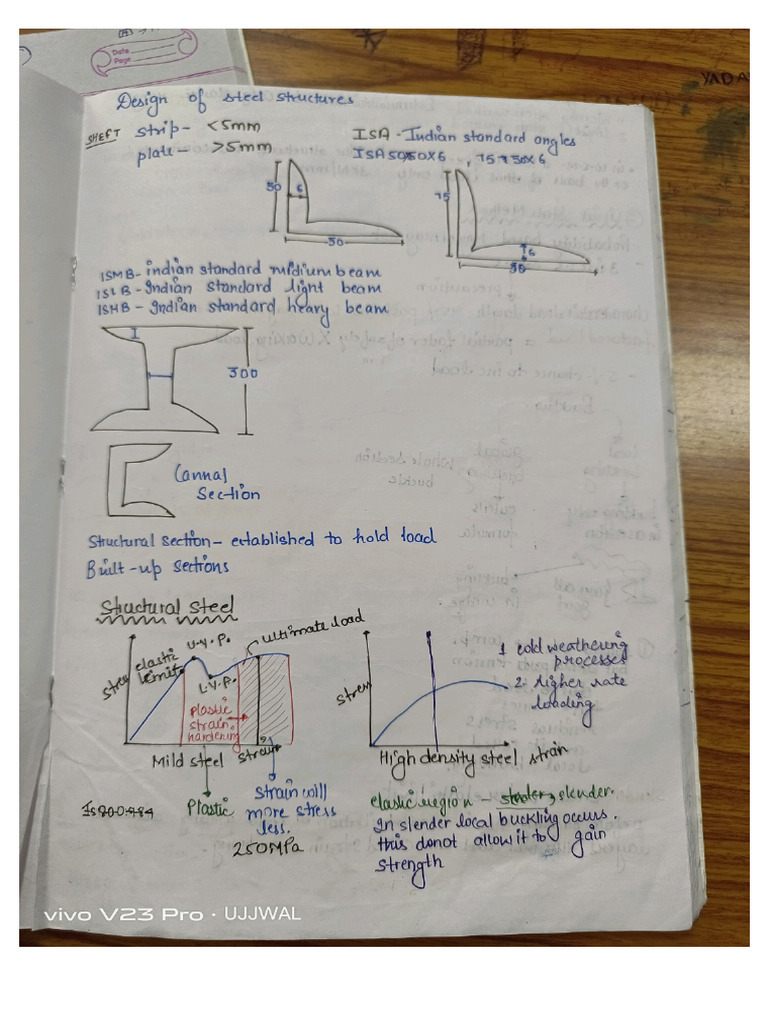 Date
Page
YADA
Design of steel structures
SHEET strip- <5mm
plate- >5mm
ISA - Indian standard angles
ISA 50X50X6, 75X50X6
50
6
50
75
6
50
ISMB- indian standard midium beam
ISLB- Indian Standard light beam
ISHB - Indian standard heavy beam
300
Cannal
Section
Structural section- established to hold load
Built-up sections
Structural steel
stress
elastic
limit
U.Y.P.
L.Y.P.
Ultimate load
Plastic
strain
hardening
strain
Mild steel
Plastic
Strain will
more stress
less.
250MPa
stress
High density steel strain
1 cold weathering
processes
2. Higher rate
loading
elastic region - slender.
In slender local buckling occurs.
this donot allow it to gain
strength
vivo V23 Pro · UJJWAL